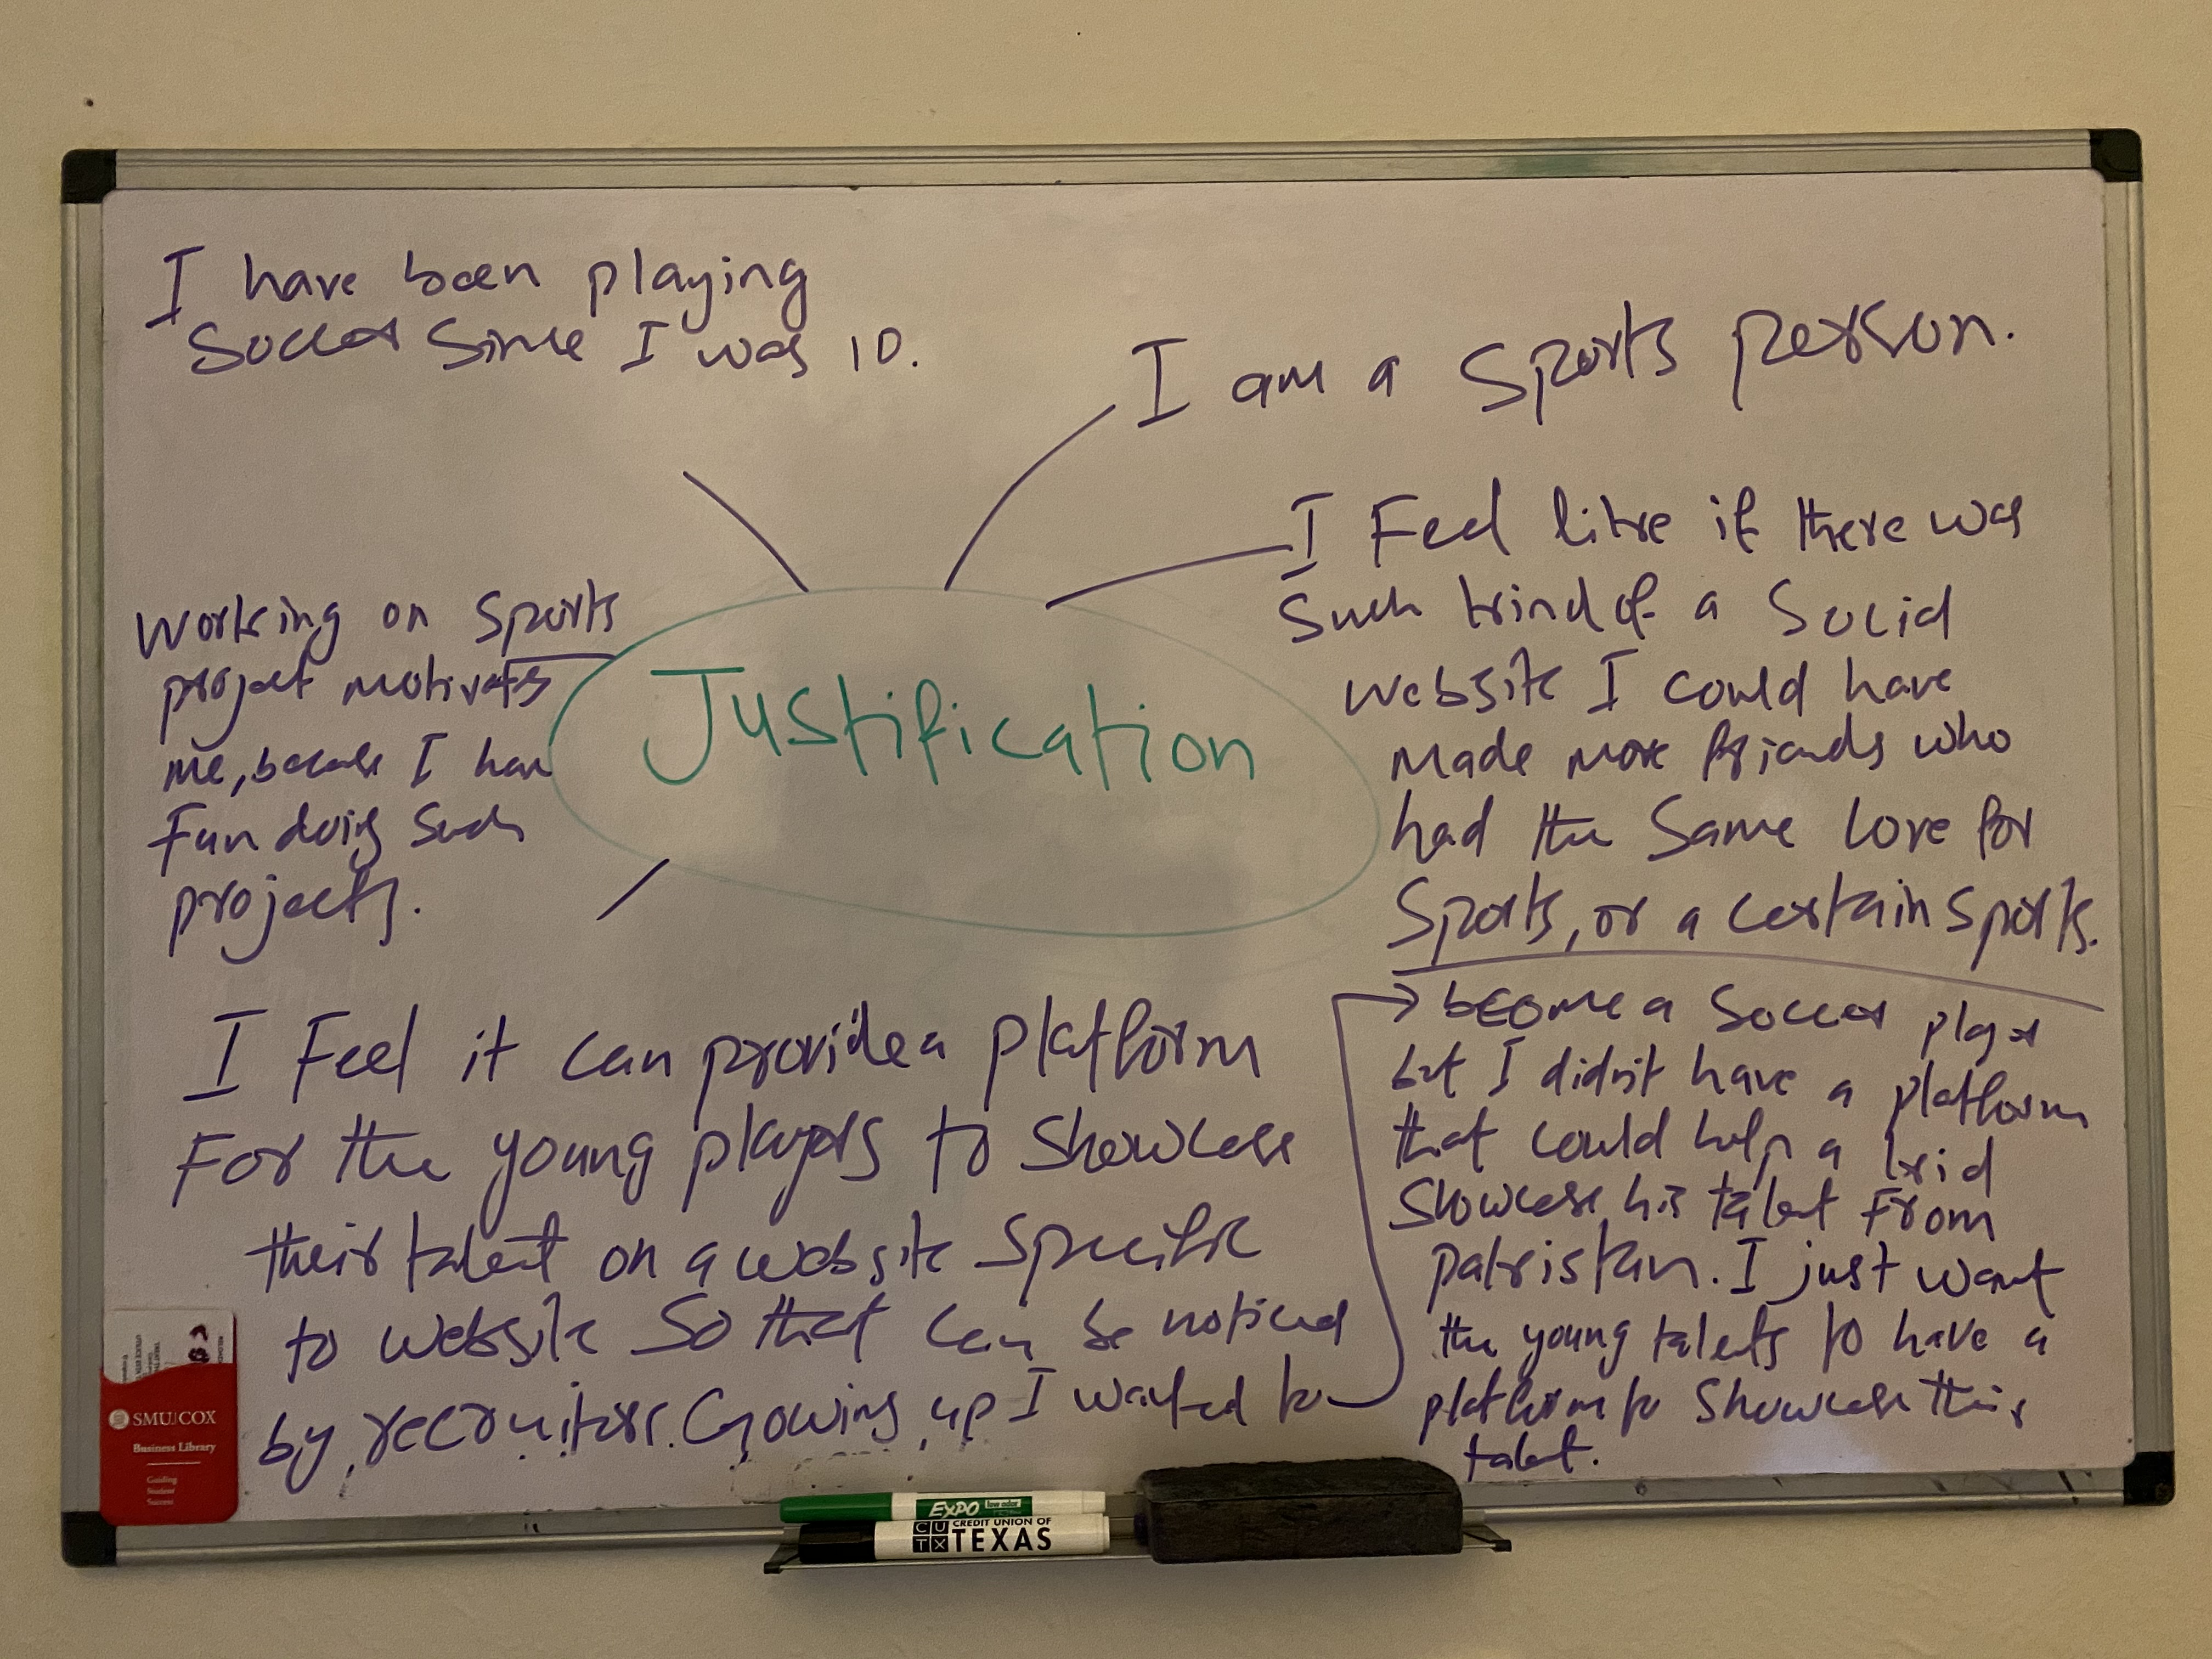 I have been playing
Soccer Since I was 10.
I am a Sports person.
I Feel like if there was
Such kind of a Solid
website I could have
made more friends who
had the Same love for
Sports, or a certain Sports.
Working on Sports
project motivates
me, because I have
Fun doing Such
projects.
Justification
I Feel it can provide a platform
For the young players to Showcase
their talent on a website Specific
to website So that can be noticed
by recruiters. Growing up I wanted to
→ become a Soccer player
but I didn't have a platform
that could help a kid
Showcase his talent From
pakistan. I just want
the young talents to have a
platform to Showcase this
talent.
SMU COX
Business Library
Guiding
Student
Success
EXPO low odor
CUTX CREDIT UNION OF
TEXAS